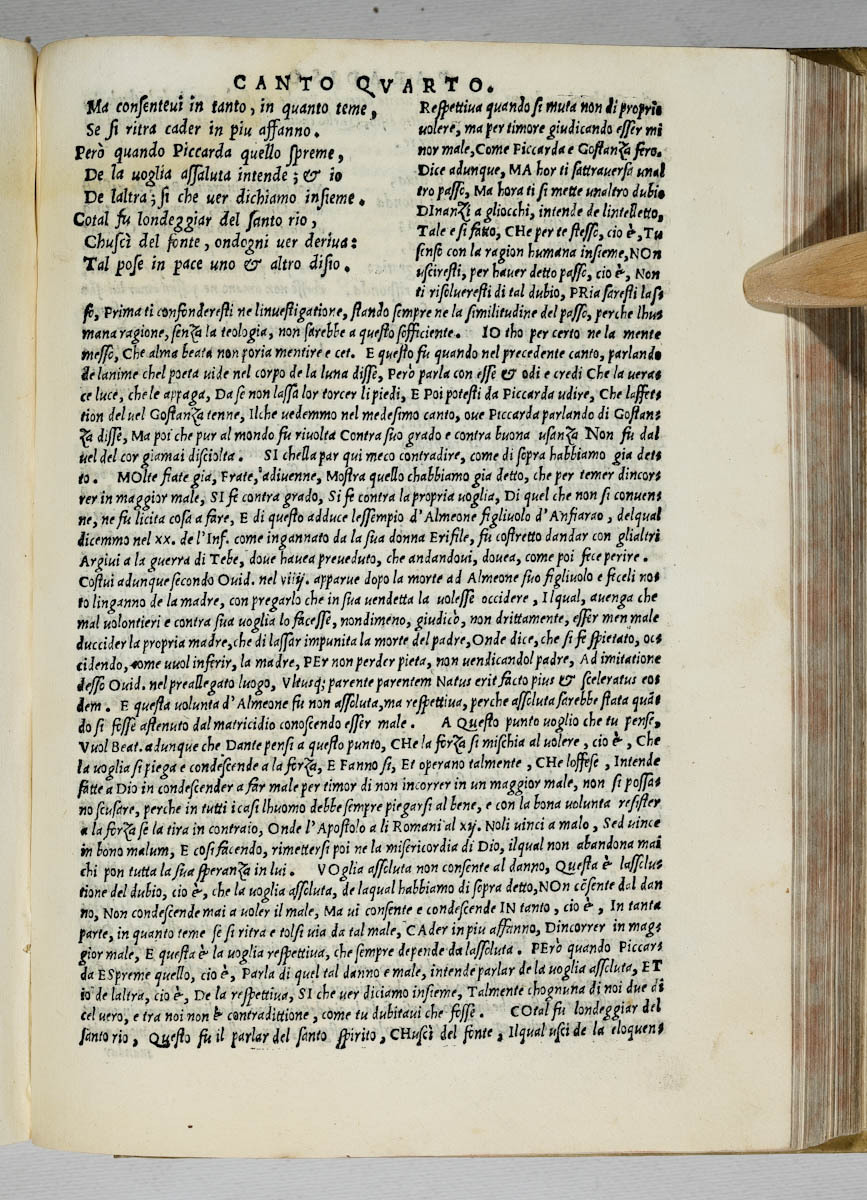 CANTO QVARTO.
Ma consenteui in tanto, in quanto teme,
Se si ritra cader in piu affanno.
Però quando Piccarda quello spreme,
De la voglia assaluta intende; & io
De laltra; si che uer dichiamo insieme.
Cotal fu londeggiar del santo rio,
Chuscì del fonte, ondogni uer deriua:
Tal pose in pace uno & altro disio.
Respettiua quando si muta non di proprio
uolere, ma per timore giudicando esser mi
nor male, Come Piccarda e Gostanza fero.
Dice adunque, MA hor ti sattrauersa unal
tro passo, Ma hora ti si mette unaltro dubio
DInanzi a gliocchi, intende de lintelletto,
Tale e si fatto, CHe per te stesso, cio è, Tu
senso con la ragion humana insieme, NOn
usciresti, per hauer detto passo, cio è, Non
ti risolueresti di tal dubio, PRia saresti las⸗
so, Prima ti confonderesti ne linuestigatione, stando sempre ne la similitudine del passo, perche lhu⸗
mana ragione, senza la teologia, non sarebbe a questo sofficiente. IO tho per certo ne la mente
messo, Che alma beata non poria mentire e cet. E questo fu quando nel precedente canto, parlando
de lanime chel poeta uide nel corpo de la luna disse, Però parla con esse & odi e credi Che la uera⸗
ce luce, che le appaga, Da se non lassa lor torcer li piedi, E Poi potesti da Piccarda udire, Che laffet⸗
tion del uel Gostanza tenne, Ilche uedemmo nel medesimo canto, oue Piccarda parlando di Gostan⸗
za disse, Ma poi che pur al mondo fu riuolta Contra suo grado e contra buona usanza Non fu dal
uel del cor giamai disciolta. SI chella par qui meco contradire, come di sopra habbiamo gia det⸗
to. MOlte fiate gia, Frate, adiuenne, Mostra quello chabbiamo gia detto, che per temer dincor⸗
rer in maggior male, SI fe contra grado, Si fe contra la propria uoglia, Di quel che non si conuen⸗
ne, ne fu licita cosa a fare, E di questo adduce lessempio d'Almeone figliuolo d'Anfiarao, delqual
dicemmo nel xx. de l'Inf. come ingannato da la sua donna Erifile, fu costretto dandar con glialtri
Argiui a la guerra di Tebe, doue hauea preueduto, che andandoui, douea, come poi fece perire.
Costui adunque secondo Ouid. nel viiij. apparue dopo la morte ad Almeone suo figliuolo e feceli no⸗
to linganno de la madre, con pregarlo che in sua uendetta la uolesse occidere, Ilqual, auenga che
mal uolontieri e contra sua uoglia lo facesse, nondimeno, giudicò, non drittamente, esser men male
duccider la propria madre, che di lassar impunita la morte del padre, Onde dice, che si fe spietato, oc⸗
cidendo, come uuol inferir, la madre, PEr non perder pieta, non uendicandol padre, Ad imitatione
desso Ouid. nel preallegato luogo, Vltusq; parente parentem Natus erit facto pius & sceleratus eo⸗
dem. E questa volunta d'Almeone fu non assoluta, ma respettiua, perche assoluta sarebbe stata quã⸗
do si fosse astenuto dal matricidio conoscendo esser male. A Questo punto voglio che tu pense,
Vuol Beat. adunque che Dante pensi a questo punto, CHe la forza si mischia al uolere, cio è, Che
la uoglia si piega e condescende a la forza, E Fanno si, Et operano talmente, CHe loffese, Intende
fatte a Dio in condescender a far male per timor di non incorrer in un maggior male, non si possa⸗
no scusare, perche in tutti i casi lhuomo debbe sempre piegarsi al bene, e con la bona volunta resister
a la forza se la tira in contraio, Onde l'Apostolo a li Romani al xij. Noli uinci a malo, Sed uince
in bono malum, E cosi facendo, rimettersi poi ne la misericordia di Dio, ilqual non abandona mai
chi pon tutta la sua speranza in lui. VOglia assoluta non consente al danno, Questa è lassolu⸗
tione del dubio, cio è, che la uoglia assoluta, de laqual habbiamo di sopra detto, NOn cõsente dal dan
no, Non condescende mai a uoler il male, Ma ui consente e condescende IN tanto, cio è, In tanta
parte, in quanto teme se si ritra e tolsi uia da tal male, CAder in piu affanno, Dincorrer in mag⸗
gior male, E questa è la uoglia respettiua, che sempre depende da lassoluta. PErò quando Piccar⸗
da ESpreme quello, cio è, Parla di quel tal danno e male, intende parlar de la uoglia assoluta, ET
io de laltra, cio è, De la respettiua, SI che uer diciamo insieme, Talmente chognuna di noi due di
cel uero, e tra noi non è contradittione, come tu dubitaui che fosse. COtal fu londeggiar del
santo rio, Questo fu il parlar del santo spirito, CHuscì del fonte, Ilqual usci de la eloquen⸗